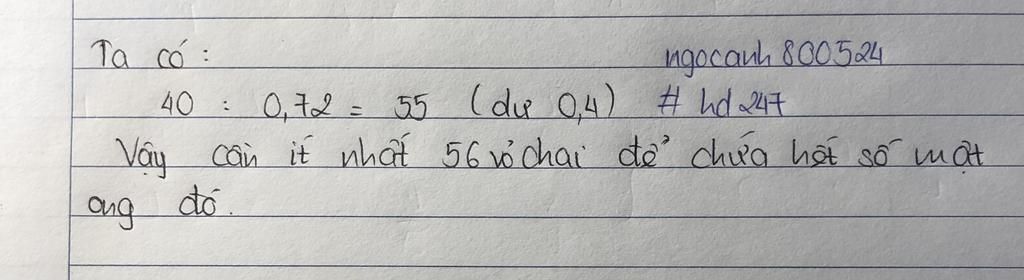 Ta có: ngocanh800524
40 : 0,72 = 55 (dư 0,4) # hd247
Vậy cần ít nhất 56 vỏ chai để chứa hết số mật
ong đó.